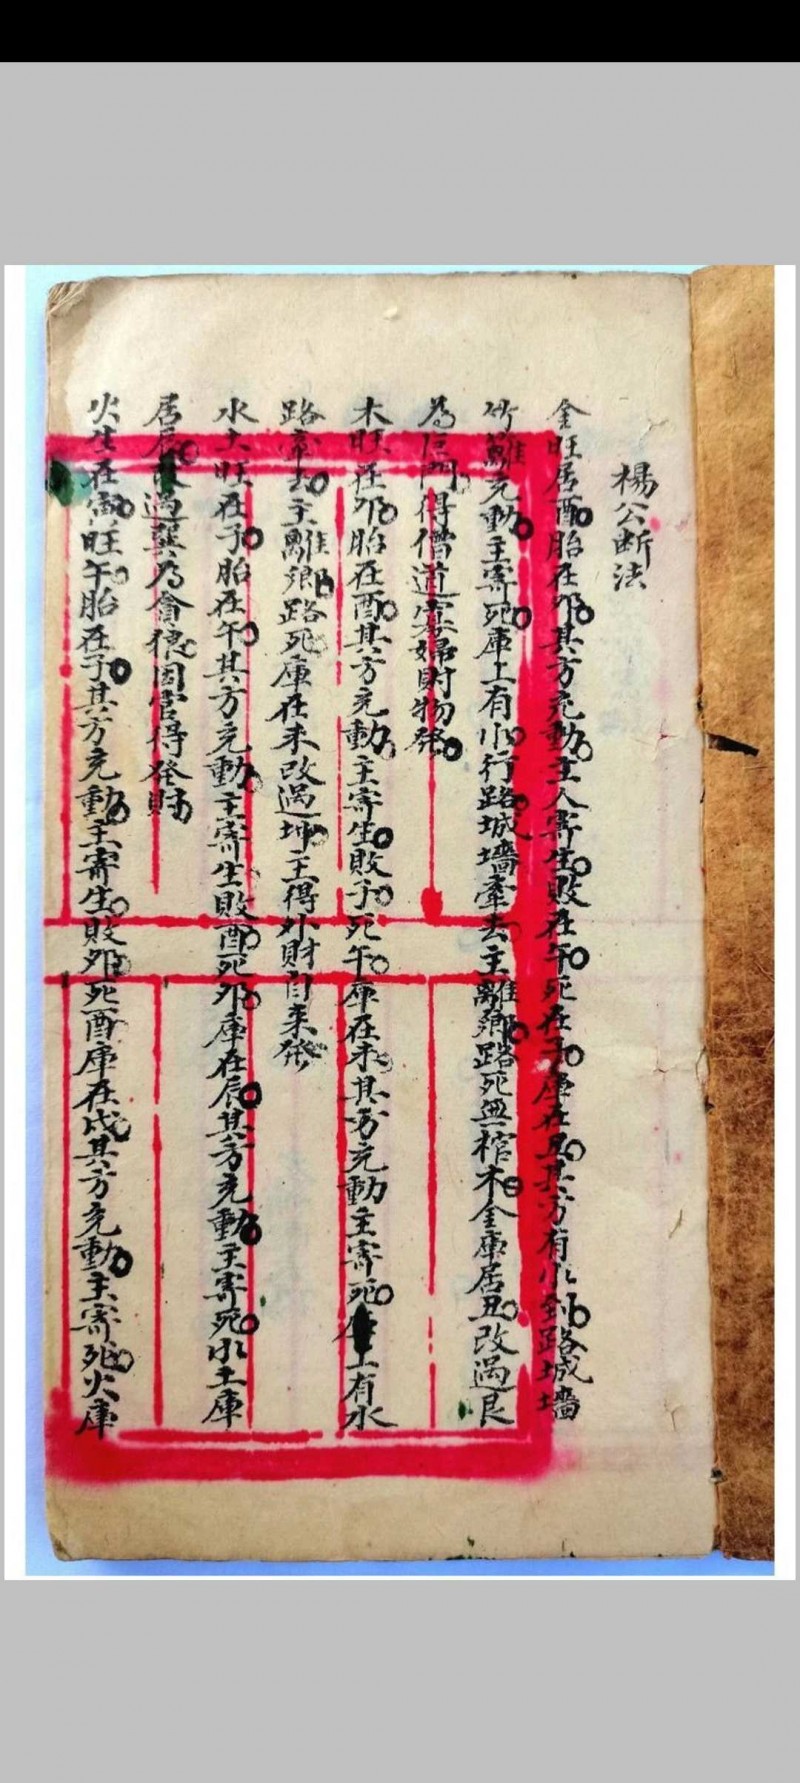 楊公断法
金旺居酉胎在卯其方克動主人寄生敗在午死在子庫在丑其方有水到路城墻
竹籬克動主寄死庫上有水行路城墻牽去主離鄉路死無棺木金庫居丑改過艮
為巨門得僧道寡婦財物發
木旺在卯胎在酉其方克動主寄生敗子死午庫在未其方克動主寄死庫上有水
路牽去主離鄉路死庫在未改過坤主得外財自来發
水土旺在子胎在午其方克動主寄生敗酉死卯庫在辰其方克動主寄死水土庫
居辰改過巽為貪狼因官得發財
火生在寅旺午胎在子其方克動主寄生敗卯死酉庫在戌其方克動主寄死火庫